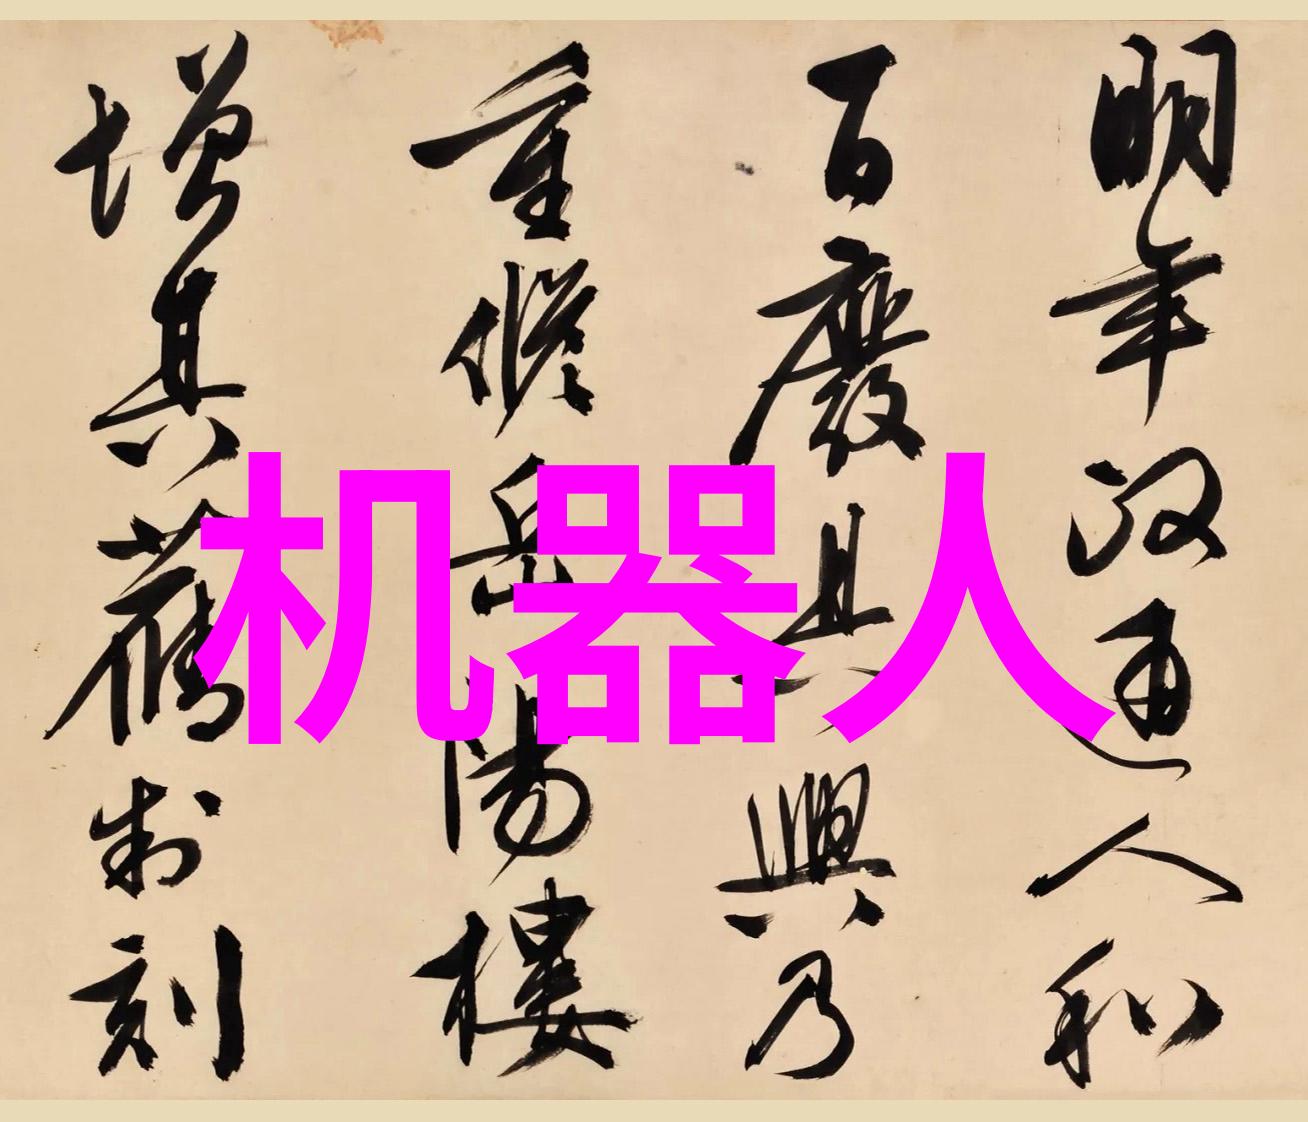 明年政通人和
百廢具興乃
重脩岳陽樓
增其舊制刻
机器人